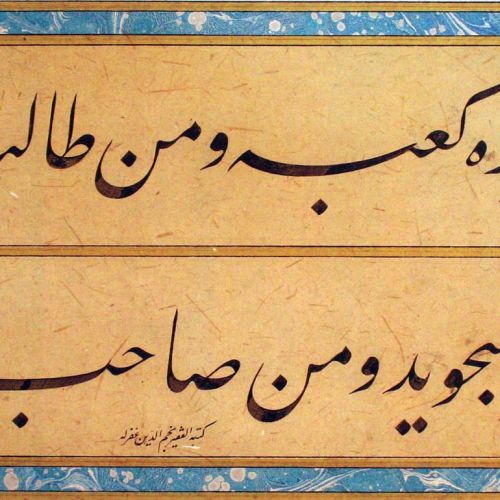 ره کعبه و من طالب
بجوید و من صاحب
کتبه الفقیر نجم الدین غفرله